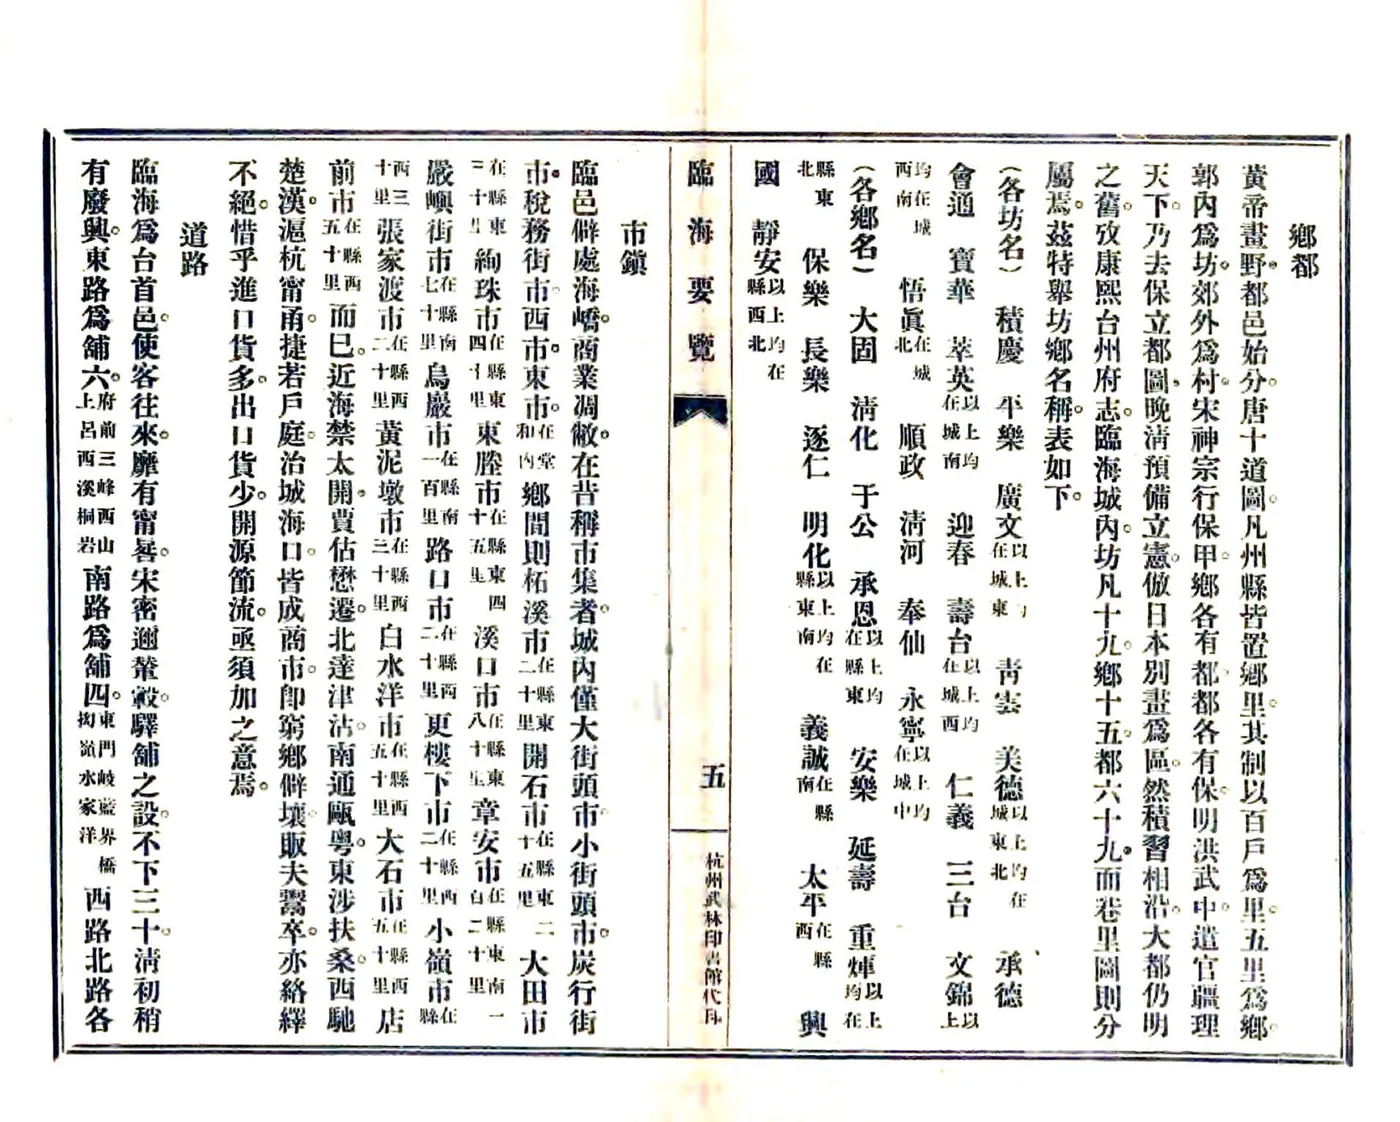 鄉都
黃帝畫野都邑始分。唐十道圖。凡州縣皆置鄉里。其制以百戶爲里。五里爲鄉。
郭內爲坊。郊外爲村。宋神宗行保甲。鄉各有都。都各有保。明洪武中。遣官疆理
天下。乃去保立都圖。晚淸預備立憲。倣日本別畫爲區。然積習相沿。大都仍明
之舊。攷康熙台州府志。臨海城內坊凡十九。鄉十五。都六十九。而巷里圖則分
屬焉。茲特舉坊鄉名稱。表如下。
(各坊名) 積慶 平樂 廣文以上均在城東 靑雲 美德以上均在城東北 承德
會通 寶華 萃英以上均在城南 迎春 壽台以上均在城西 仁義 三台 文錦以上
均在城西南 悟眞在城北 順政 淸河 奉仙 永寧以上均在城中
(各鄉名) 大固 淸化 于公 承恩以上均在縣東 安樂 延壽 重煇以上均在
縣東北 保樂 長樂 逐仁 明化以上均在縣東南 義誠在縣南 太平在縣西 興
國 靜安以上均在縣西北
臨海要覽
五
杭州武林印書館代印
市鎭
臨邑僻處海嶠。商業凋敝。在昔稱市集者。城內僅大街頭市。小街頭市。炭行街
市。稅務街市。西市。東市。在堂和內鄉間則柘溪市在縣東二十里開石市在縣東二十五里大田市
在縣東三十里絢珠市在縣東四十里東塍市在縣東四十五里溪口市在縣東八十里章安市在縣東南一百二十里
嚴嶼街市在縣南七十里烏巖市在縣南一百里路口市在縣西二十里更樓下市在縣西二十里小嶺市在縣
西三十里張家渡市在縣西二十里黃泥墩市在縣西三十里白水洋市在縣西五十里大石市在縣西五十里店
前市在縣西五十里而已。近海禁太開。賈估懋遷。北達津沽。南通甌粵。東涉扶桑。西馳
楚漢。滬杭甯甬。捷若戶庭。治城海口。皆成商市。卽窮鄉僻壤。販夫鬻卒。亦絡繹
不絕。惜乎進口貨多。出口貨少。開源節流。亟須加之意焉。
道路
臨海爲台首邑。使客往來。靡有甯晷。宋密邇輦轂。驛舖之設。不下三十。淸初稍
有廢興。東路爲舖六。府前三峰西山上呂西溪桐岩南路爲舖四。東門岐藍界橋拗嶺水家洋西路北路各